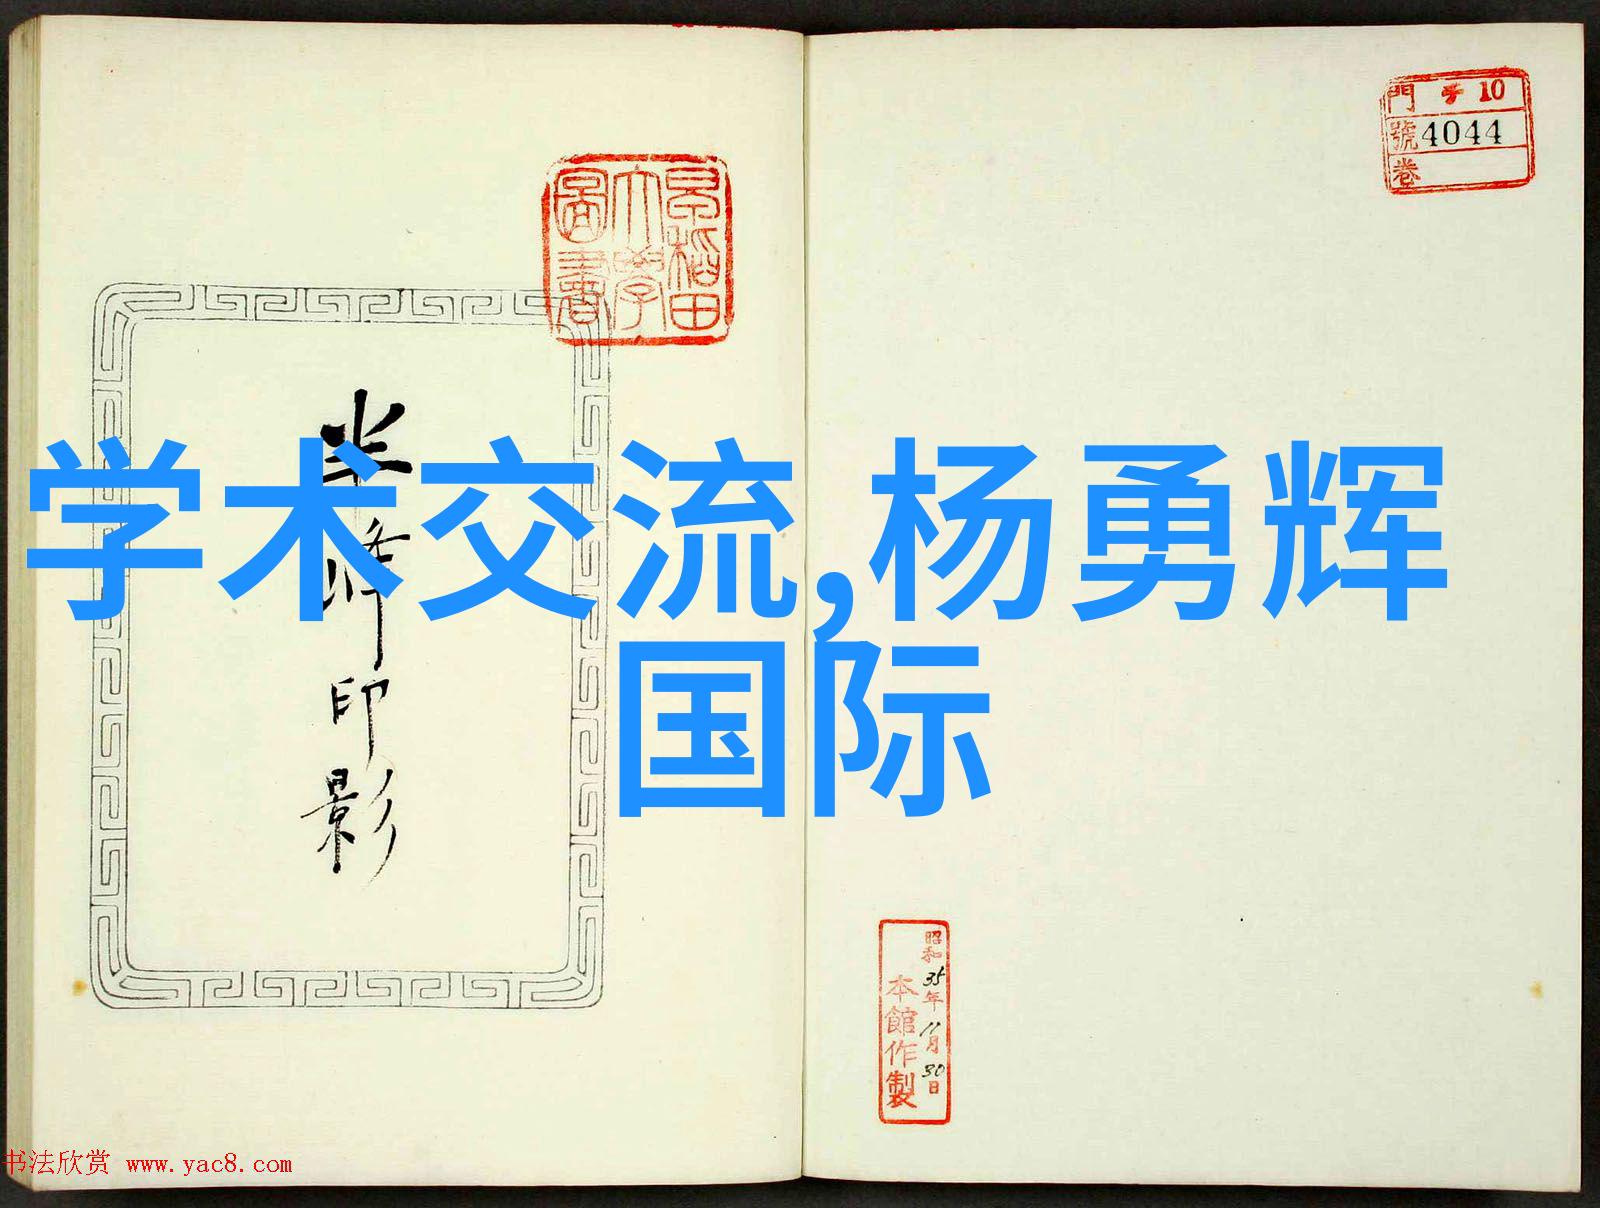 門 チ 10
號 4044
卷
早稻田
大學
圖書
半峰印影
学术交流,杨勇辉
国际
昭和35年11月30日
本館作製
书法欣赏 www.yac8.com